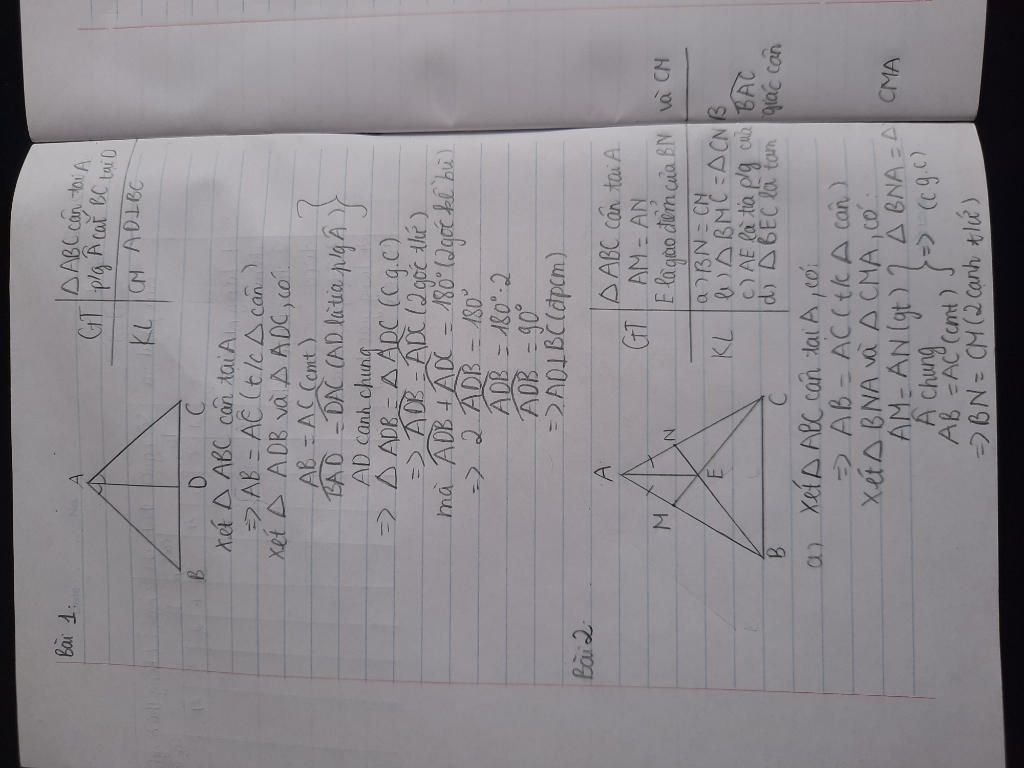 Bài 1:
A
B
D
C
GT
△ABC cân tại A
p/g Â cắt BC tại D
KL
CM AD⊥BC
xét △ABC cân tại A,
=> AB = AC (t/c △ cân)
xét △ ADB và △ ADC, có:
AB = AC (cmt)
BAD = DAC (AD là tia p/g Â) }
AD cạnh chung
=> △ ADB = △ ADC (c.g.c)
=> ADB = ADC (2 góc t/ứ)
mà ADB + ADC = 180° (2 góc kề bù)
=> 2 ADB = 180°
ADB = 180° : 2
ADB = 90°
=> AD⊥BC (đpcm)
Bài 2:
A
M
N
E
B
C
GT
△ABC cân tại A
AM = AN
E là giao điểm của BN và CM
KL
a) BN = CM
b) △BMC = △CNB
c) AE là tia p/g của BAC
d) △BEC là tam giác cân
a) xét △ABC cân tại A, có:
=> AB = AC (t/c △ cân)
xét △ BNA và △ CMA, có:
AM = AN (gt) } △ BNA = △ CMA
Â chung } => (c.g.c)
AB = AC (cmt)
=> BN = CM (2 cạnh t/ứ)